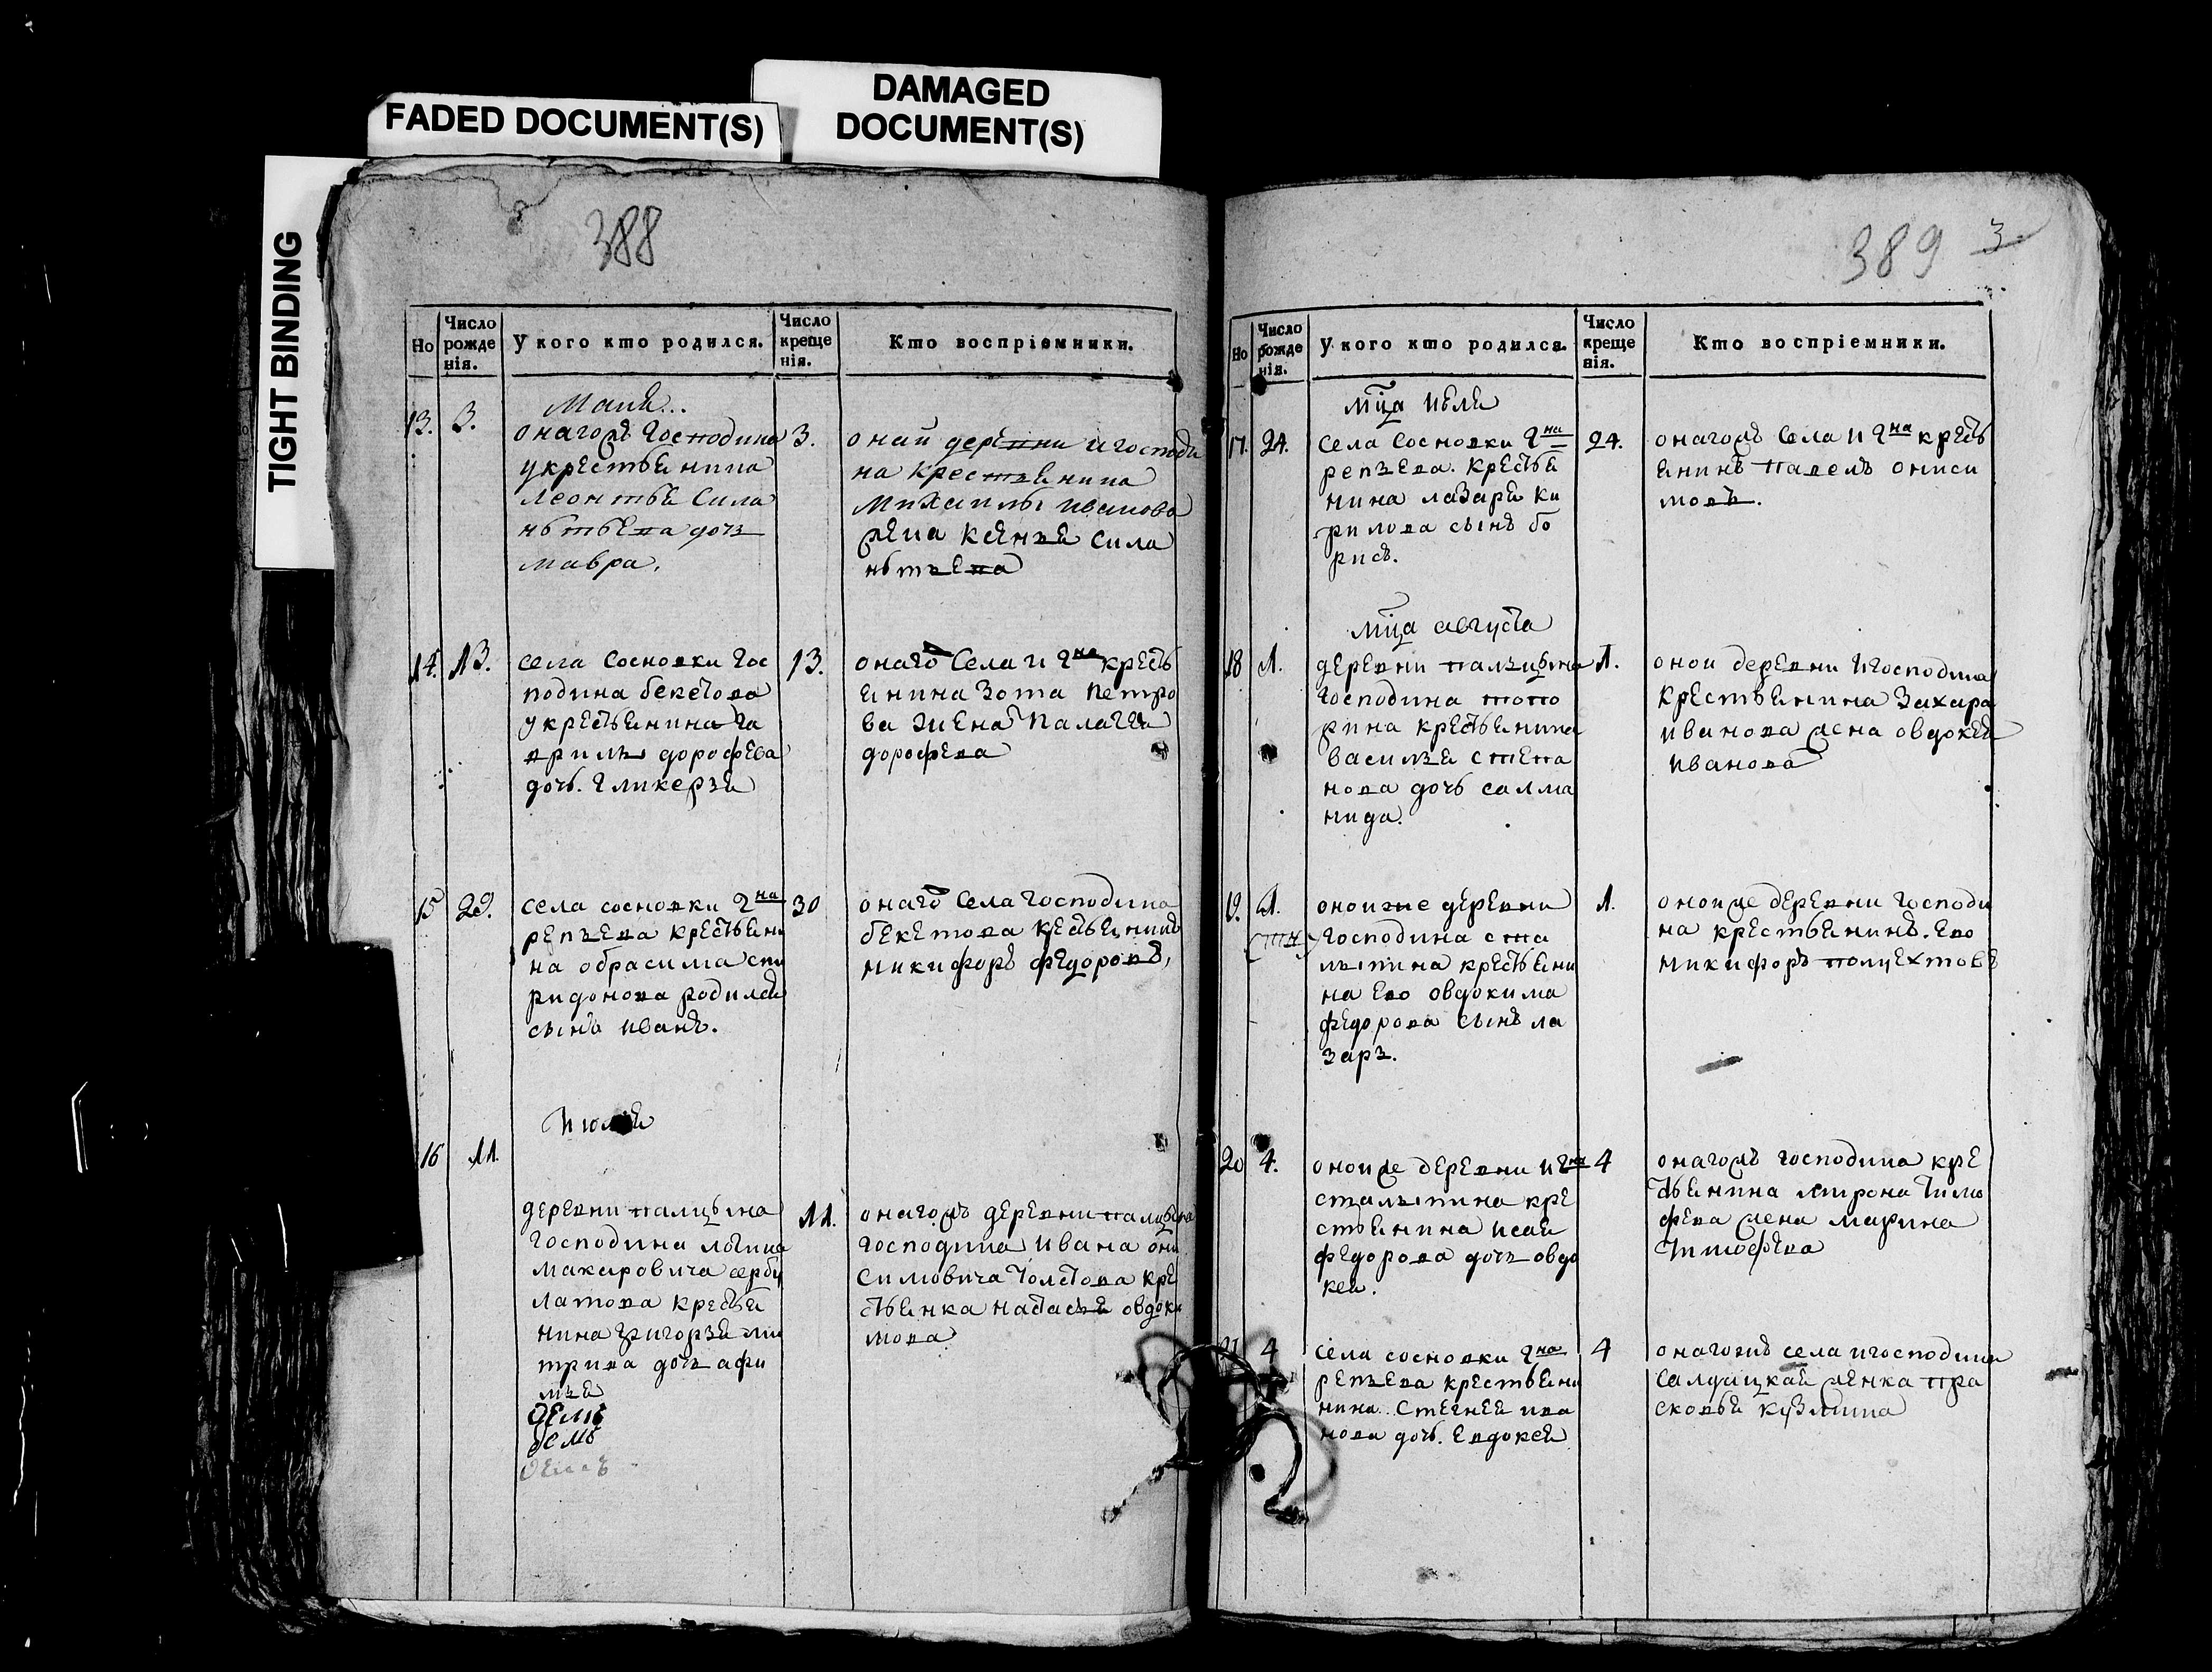 FADED DOCUMENT(S)
DAMAGED
DOCUMENT(S)
TIGHT BINDING
388
Но
Число
рожде
нія.
У кого кто родился.
Число
креще
нія.
Кто воспріемники.
Маия..
13. 3.
онагожъ Господина
укрестьянина
леонтья Сила
нътьева дочь
мавра.
3.
онаи деревни игосподи
на крестьянина
Михаилы иванова
жена ксенья сила
нътьева
14. 13.
села Сосновки Гос
подина бекетова
укрестьянина га
врилы дорофева
дочь. Гликерья
13.
онаго Села и Гна кресть
янина Зота петро
ва жена Палагея
дорофева
15 29.
села сосновки Гна
репьева крестьяни
на обрасима спи
ридонова родился
сынъ иванъ.
30
онаго Села Господина
бекетова кестьянинъ
никифоръ федоровъ,
Июля
16 11.
деревни палцына
господина логина
макаровича
латова крестья
нина григорья ми
трива дочь афи
мья
11.
онагожъ деревни палцына
господина Ивана они
симовича Толстова кре
стьянка настасья овдоки
мова
389 3
Но
Число
рожде
нія.
У кого кто родился.
Число
креще
нія.
Кто воспріемники.
мца июля
17. 24.
Села Сосновки Гна
репьева. крестья
нина лазаря ки
рилова сынъ бо
рисъ.
24.
онагожъ Села и Гна кресть
янинъ павелъ ониси
мовъ.
мца августа
18 1.
деревни палцына
Господина топо
рина крестьянина
василья степа
нова дочь салма
нида.
1.
онои деревни Игосподина
крестьянина Захара
иванова жена овдокея
иванова
19. 1.
оноиже деревни
Господина ста
лыпина крестьяни
на Ево овдокима
федорова сынъ ла
зарь.
1.
оноиже деревни Господи
на крестьянинъ. Ево
никифоръ полуехтовъ
20 4.
оноиже деревни и Гна
сталыпина кре
стьянина исая
федорова дочь овдо
кея.
4
онагожъ господина кре
стьянина мирона Тимо
фева жена марина
Тимофева
21 4
села сосновки Гна
репьева крестьяни
нина. Стегнея ива
нова дочь. Евдокея
4
онагожъ села игосподина
женка пра
сковья кузмина